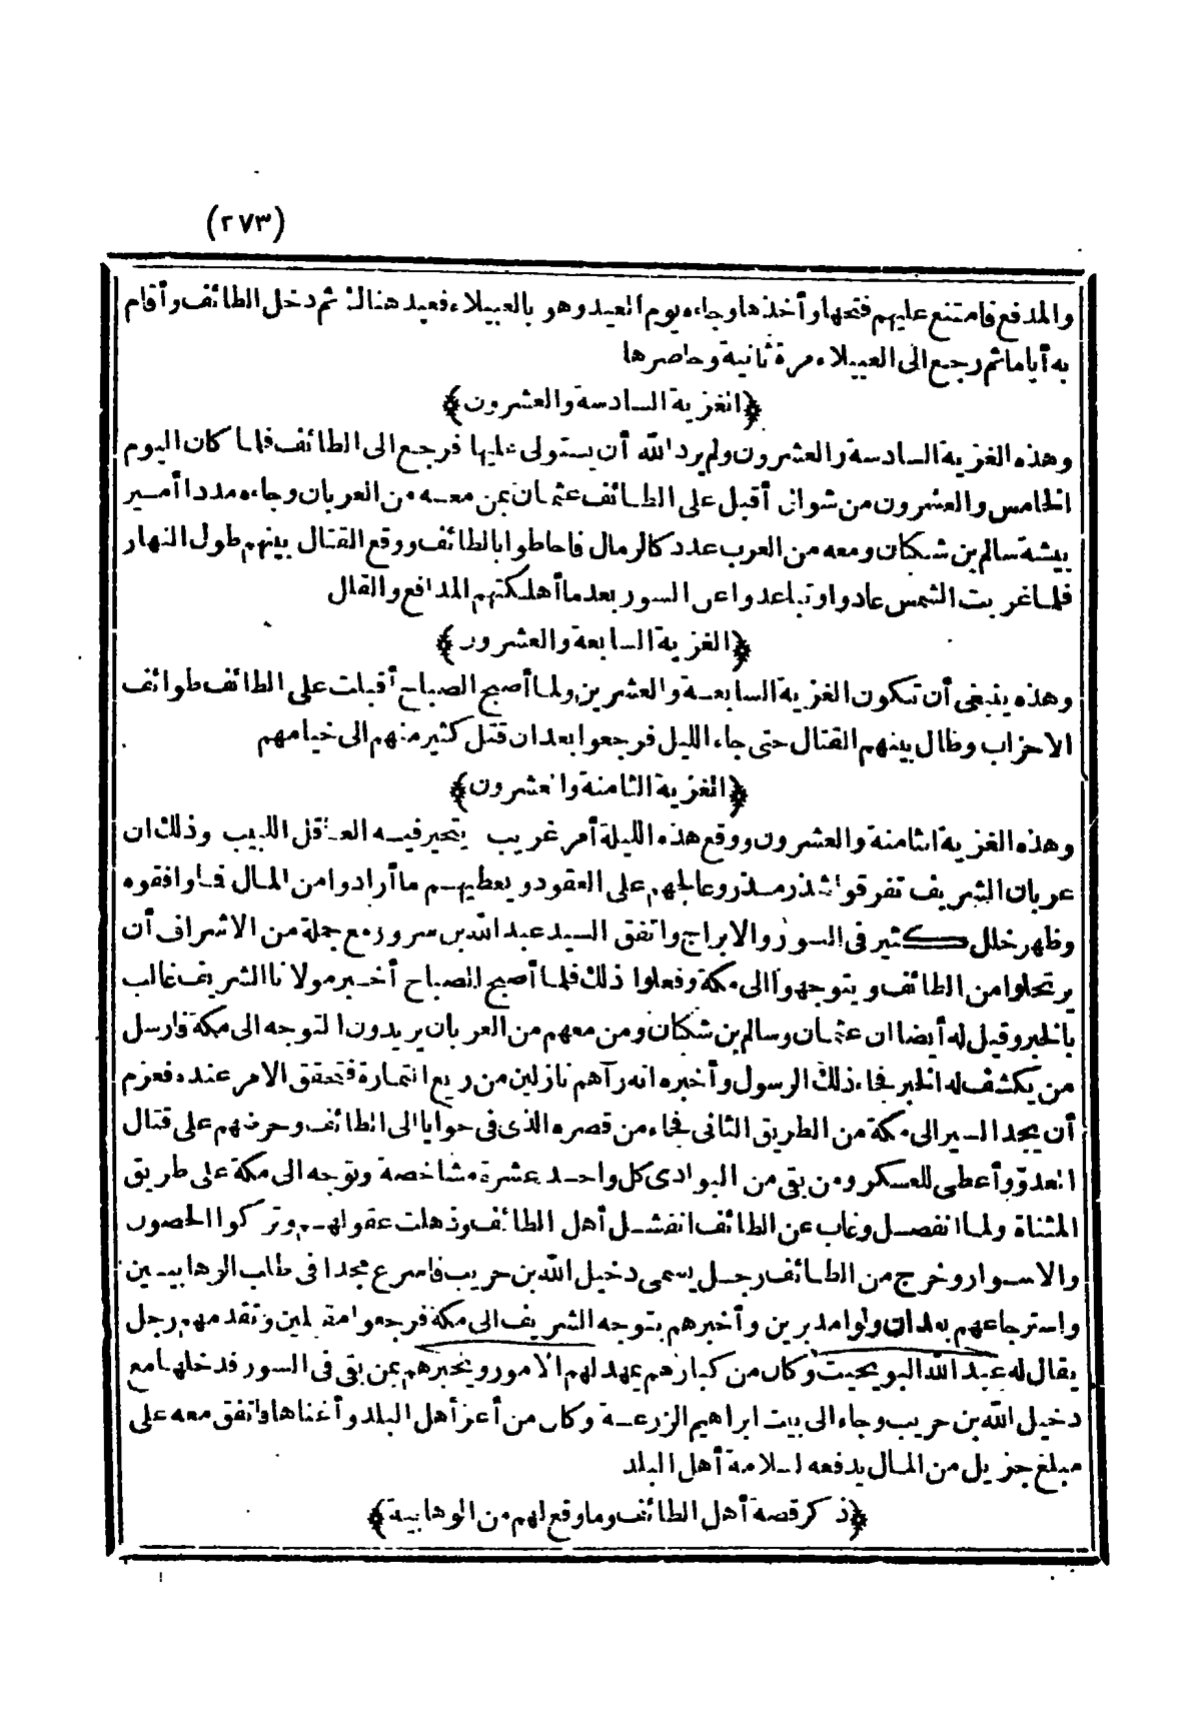 (٢٧٣)
والمدفع فامتنع عليهم فتحها وأخذها وجاءه يوم العيد وهو بالعبيلاء فعيد هناك ثم دخل الطائف وأقام
به أياما ثم رجع الى العبيلاء مرة ثانية وحاصرها
﴿الغزية السادسة والعشرون﴾
وهذه الغزية السادسة والعشرون ولم يرد الله أن يستولى عليها فرجع الى الطائف فلما كان اليوم
الخامس والعشرون من شوال أقبل على الطائف عثمان بمن معه من العربان وجاءه مددا أمير
بيشة سالم بن شكان ومعه من العرب عدد كالرمال فاحاطوا بالطائف ووقع القتال بينهم طول النهار
فلما غربت الشمس عادوا وتباعدوا عن السور بعدما أهلكتهم المدافع والقال
﴿الغزية السابعة والعشرون﴾
وهذه ينبغى أن تكون الغزية السابعة والعشرين ولما أصبح الصباح أقبلت على الطائف طوائف
الاحزاب وطال بينهم القتال حتى جاء الليل فرجعوا بعد ان قتل كثير منهم الى خيامهم
﴿الغزية الثامنة والعشرون﴾
وهذه الغزية الثامنة والعشرون ووقع هذه الليلة أمر غريب يتحير فيه العاقل اللبيب وذلك ان
عربان الشريف تفرقوا شذر مذر وعالجهم على العقود ويعطيهم ما أرادوا من المال فما وافقوه
وظهر خلل كثير فى السور والابراج واتفق السيد عبد الله بن سرور مع جملة من الاشراف أن
يرتحلوا من الطائف ويتوجهوا الى مكة وفعلوا ذلك فلما أصبح الصباح أخبر مولانا الشريف غالب
بالخبر وقيل له أيضا ان عثمان وسالم بن شكان ومن معهم من العربان يريدون التوجه الى مكة فارسل
من يكشف له الخبر فجاء ذلك الرسول وأخبره انه رآهم نازلين من ريع التمارة فتحقق الامر عنده فعزم
أن يجد السير الى مكة من الطريق الثانى فجاء من قصره الذى فى حوايا الى الطائف وحرضهم على قتال
العدو وأعطى للعسكر ومن بقى من البوادى كل واحد عشرة مشاخصة وتوجه الى مكة على طريق
المثناة ولما انفصل وغاب عن الطائف انفشل أهل الطائف وذهلت عقولهم وتركوا الحصون
والاسوار وخرج من الطائف رجل يسمى دخيل الله بن حريب فاسرع مجدا فى طلب الوهابيين
واسترجاعهم بعد ان ولوا مدبرين وأخبرهم بتوجه الشريف الى مكة فرجعوا مقبلين وتقدمهم رجل
يقال له عبد الله البويحيت وكان من كبارهم يمهد لهم الامور ويخبرهم بمن بقى فى السور فدخلها مع
دخيل الله بن حريب وجاء الى بيت ابراهيم الزرعة وكان من أعز أهل البلد وأغناها واتفق معه على
مبلغ جزيل من المال يدفعه لسلامة أهل البلد
﴿ذكر قصة أهل الطائف وما وقع لهم من الوهابية﴾